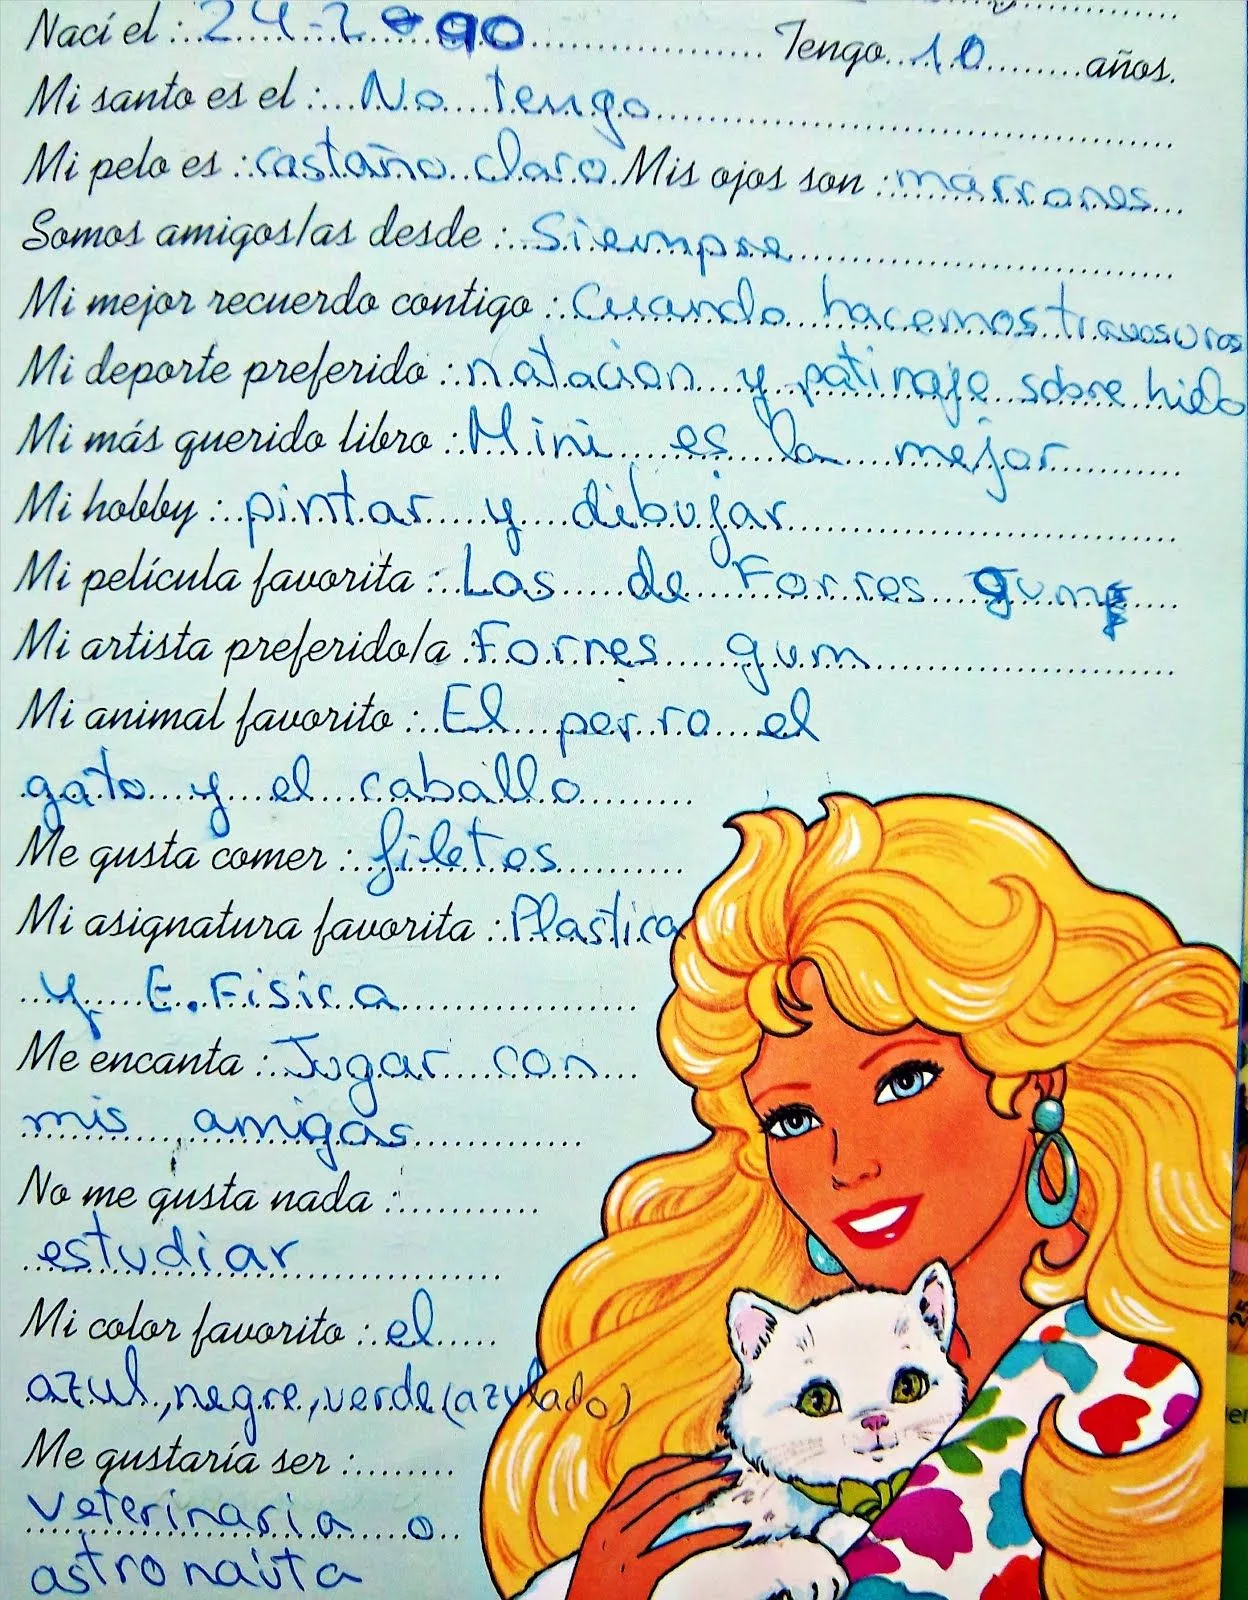 Nací el : 24-2-90 Tengo 10 años.
Mi santo es el : No tengo
Mi pelo es : castaño claro. Mis ojos son : marrones
Somos amigos/as desde : Siempre
Mi mejor recuerdo contigo : Cuando hacemos travosuras
Mi deporte preferido : natacion y patinaje sobre hielo
Mi más querido libro : Mini es la mejor
Mi hobby : pintar y dibujar
Mi película favorita : Las de Forres gump
Mi artista preferido/a : Fornes gum
Mi animal favorito : El perro el
gato y el caballo
Me gusta comer : filetes
Mi asignatura favorita : Plastica
y E. Fisica
Me encanta : Jugar con
mis amigas
No me gusta nada :
estudiar
Mi color favorito : el
azul, negre, verde (azulado)
Me gustaría ser :
veterinaria o
astronauta